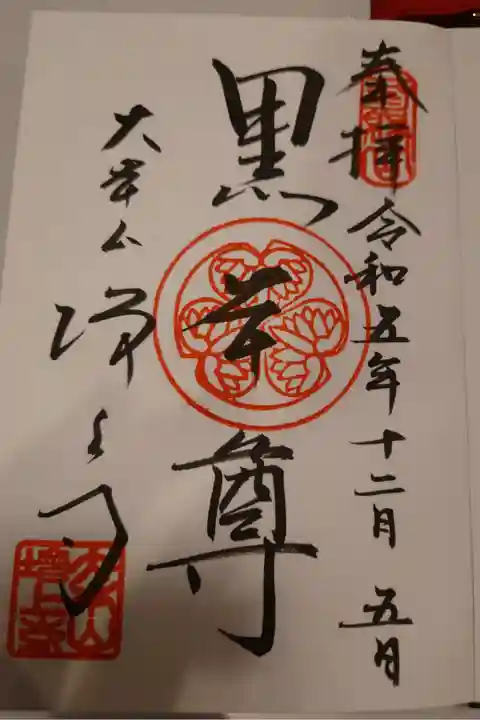 奉拝 令和五年十二月五日
黒本尊
大本山
増上寺
大本山
増上寺